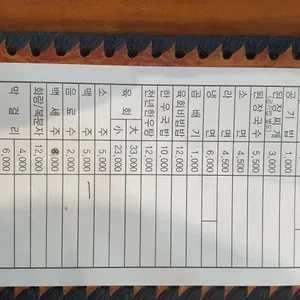 공기밥 1,000
된장찌개 (공기밥 별도) 3,000
된장국수 5,500
소면 4,500
라면 4,500
냉면 6,000
곱배기 1,000
육회비빔밥 12,000
한우국밥 10,000
천년한우탕 12,000
육회 大 33,000
小 23,000
소주 5,000
맥주 5,000
음료수 2,000
백세주 8,000
화랑/복분자 12,000
막걸리 4,000
6,000